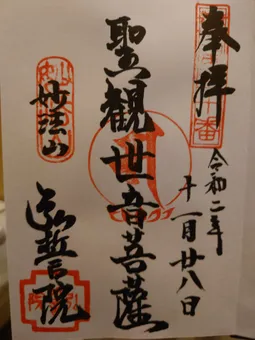 奉拝
令和二年
十一月廿八日
聖観世音菩薩
妙法山
誓院